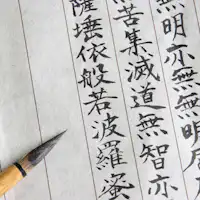 無明亦無無明
苦集滅道無智亦
薩埵依般若波羅蜜